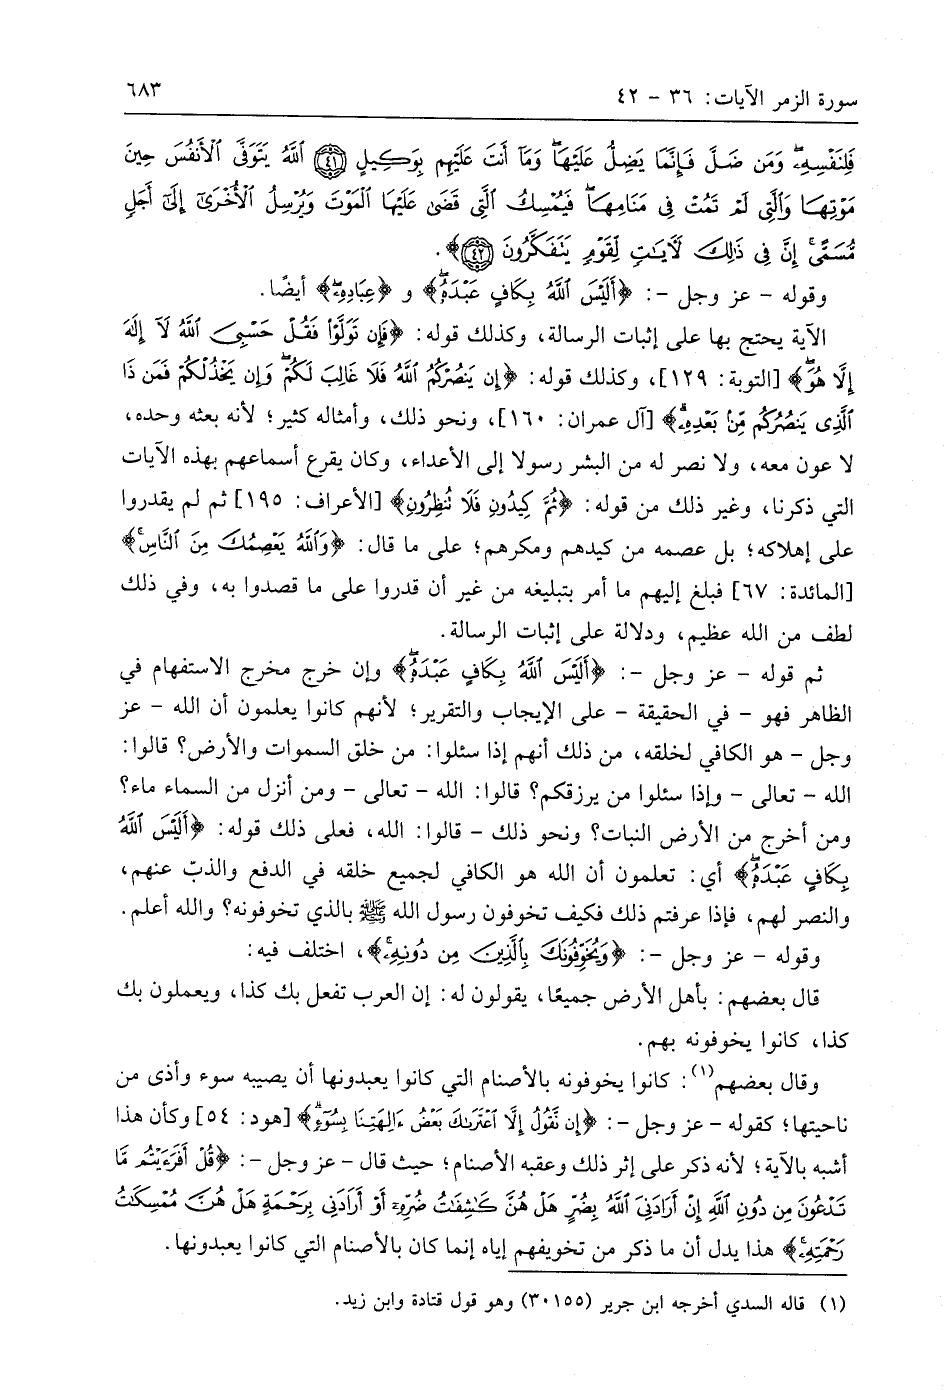 سورة الزمر الآيات: ٣٦ - ٤٢ ٦٨٣
فَلِنَفْسِهِۦۖ وَمَن ضَلَّ فَإِنَّمَا يَضِلُّ عَلَيْهَاۖ وَمَآ أَنتَ عَلَيْهِم بِوَكِيلٍ (٤١) ٱللَّهُ يَتَوَفَّى ٱلْأَنفُسَ حِينَ
مَوْتِهَا وَٱلَّتِى لَمْ تَمُتْ فِى مَنَامِهَاۖ فَيُمْسِكُ ٱلَّتِى قَضَىٰ عَلَيْهَا ٱلْمَوْتَ وَيُرْسِلُ ٱلْأُخْرَىٰٓ إِلَىٰٓ أَجَلٍ
مُّسَمًّىۚ إِنَّ فِى ذَٰلِكَ لَـَٔايَـٰتٍ لِّقَوْمٍ يَتَفَكَّرُونَ (٤٢)﴾.
وقوله - عز وجل -: ﴿أَلَيْسَ ٱللَّهُ بِكَافٍ عَبْدَهُۥۖ﴾ و ﴿عِبَادِهِۦۖ﴾ أيضًا.
الآية يحتج بها على إثبات الرسالة، وكذلك قوله: ﴿فَإِن تَوَلَّوْا۟ فَقُلْ حَسْبِىَ ٱللَّهُ لَآ إِلَٰهَ
إِلَّا هُوَۖ﴾ [التوبة: ١٢٩]، وكذلك قوله: ﴿إِن يَنصُرْكُمُ ٱللَّهُ فَلَا غَالِبَ لَكُمْۖ وَإِن يَخْذُلْكُمْ فَمَن ذَا
ٱلَّذِى يَنصُرُكُم مِّنۢ بَعْدِهِۦۗ﴾ [آل عمران: ١٦٠]، ونحو ذلك، وأمثاله كثير؛ لأنه بعثه وحده،
لا عون معه، ولا نصر له من البشر رسولا إلى الأعداء، وكان يقرع أسماعهم بهذه الآيات
التي ذكرنا، وغير ذلك من قوله: ﴿ثُمَّ كِيدُونِ فَلَا تُنظِرُونِ﴾ [الأعراف: ١٩٥] ثم لم يقدروا
على إهلاكه؛ بل عصمه من كيدهم ومكرهم؛ على ما قال: ﴿وَٱللَّهُ يَعْصِمُكَ مِنَ ٱلنَّاسِۚ﴾
[المائدة: ٦٧] فبلغ إليهم ما أمر بتبليغه من غير أن قدروا على ما قصدوا به، وفي ذلك
لطف من الله عظيم، ودلالة على إثبات الرسالة.
ثم قوله - عز وجل -: ﴿أَلَيْسَ ٱللَّهُ بِكَافٍ عَبْدَهُۥۖ﴾ وإن خرج مخرج الاستفهام في
الظاهر فهو - في الحقيقة - على الإيجاب والتقرير؛ لأنهم كانوا يعلمون أن الله - عز
وجل - هو الكافي لخلقه، من ذلك أنهم إذا سئلوا: من خلق السموات والأرض؟ قالوا:
الله - تعالى - وإذا سئلوا من يرزقكم؟ قالوا: الله - تعالى - ومن أنزل من السماء ماء؟
ومن أخرج من الأرض النبات؟ ونحو ذلك - قالوا: الله، فعلى ذلك قوله: ﴿أَلَيْسَ ٱللَّهُ
بِكَافٍ عَبْدَهُۥۖ﴾ أي: تعلمون أن الله هو الكافي لجميع خلقه في الدفع والذبّ عنهم،
والنصر لهم، فإذا عرفتم ذلك فكيف تخوفون رسول الله ﷺ بالذي تخوفونه؟ والله أعلم.
وقوله - عز وجل -: ﴿وَيُخَوِّفُونَكَ بِٱلَّذِينَ مِن دُونِهِۦۚ﴾، اختلف فيه:
قال بعضهم: بأهل الأرض جميعًا، يقولون له: إن العرب تفعل بك كذا، ويعملون بك
كذا، كانوا يخوفونه بهم.
وقال بعضهم(١): كانوا يخوفونه بالأصنام التي كانوا يعبدونها أن يصيبه سوء وأذى من
ناحيتها؛ كقوله - عز وجل -: ﴿إِن نَّقُولُ إِلَّا ٱعْتَرَىٰكَ بَعْضُ ءَالِهَتِنَا بِسُوٓءٍۗ﴾ [هود: ٥٤] وكأن هذا
أشبه بالآية؛ لأنه ذكر على إثر ذلك وعقبه الأصنام؛ حيث قال - عز وجل -: ﴿قُلْ أَفَرَءَيْتُم مَّا
تَدْعُونَ مِن دُونِ ٱللَّهِ إِنْ أَرَادَنِىَ ٱللَّهُ بِضُرٍّ هَلْ هُنَّ كَـٰشِفَـٰتُ ضُرِّهِۦٓ أَوْ أَرَادَنِى بِرَحْمَةٍ هَلْ هُنَّ مُمْسِكَـٰتُ
رَحْمَتِهِۦۚ﴾ هذا يدل أن ما ذكر من تخويفهم إياه إنما كان بالأصنام التي كانوا يعبدونها.
(١) قاله السدي أخرجه ابن جرير (٣٠١٥٥) وهو قول قتادة وابن زيد.